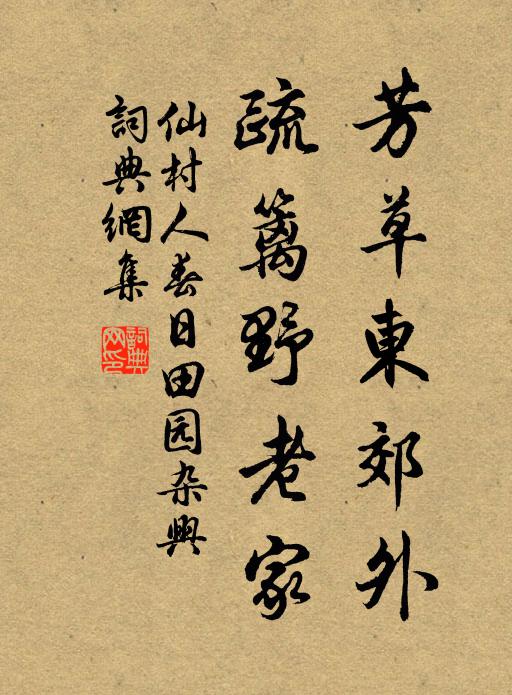 芳草東郊外
疏篱野老家
仙村人春日田园杂興
詞典網集
詞典网印